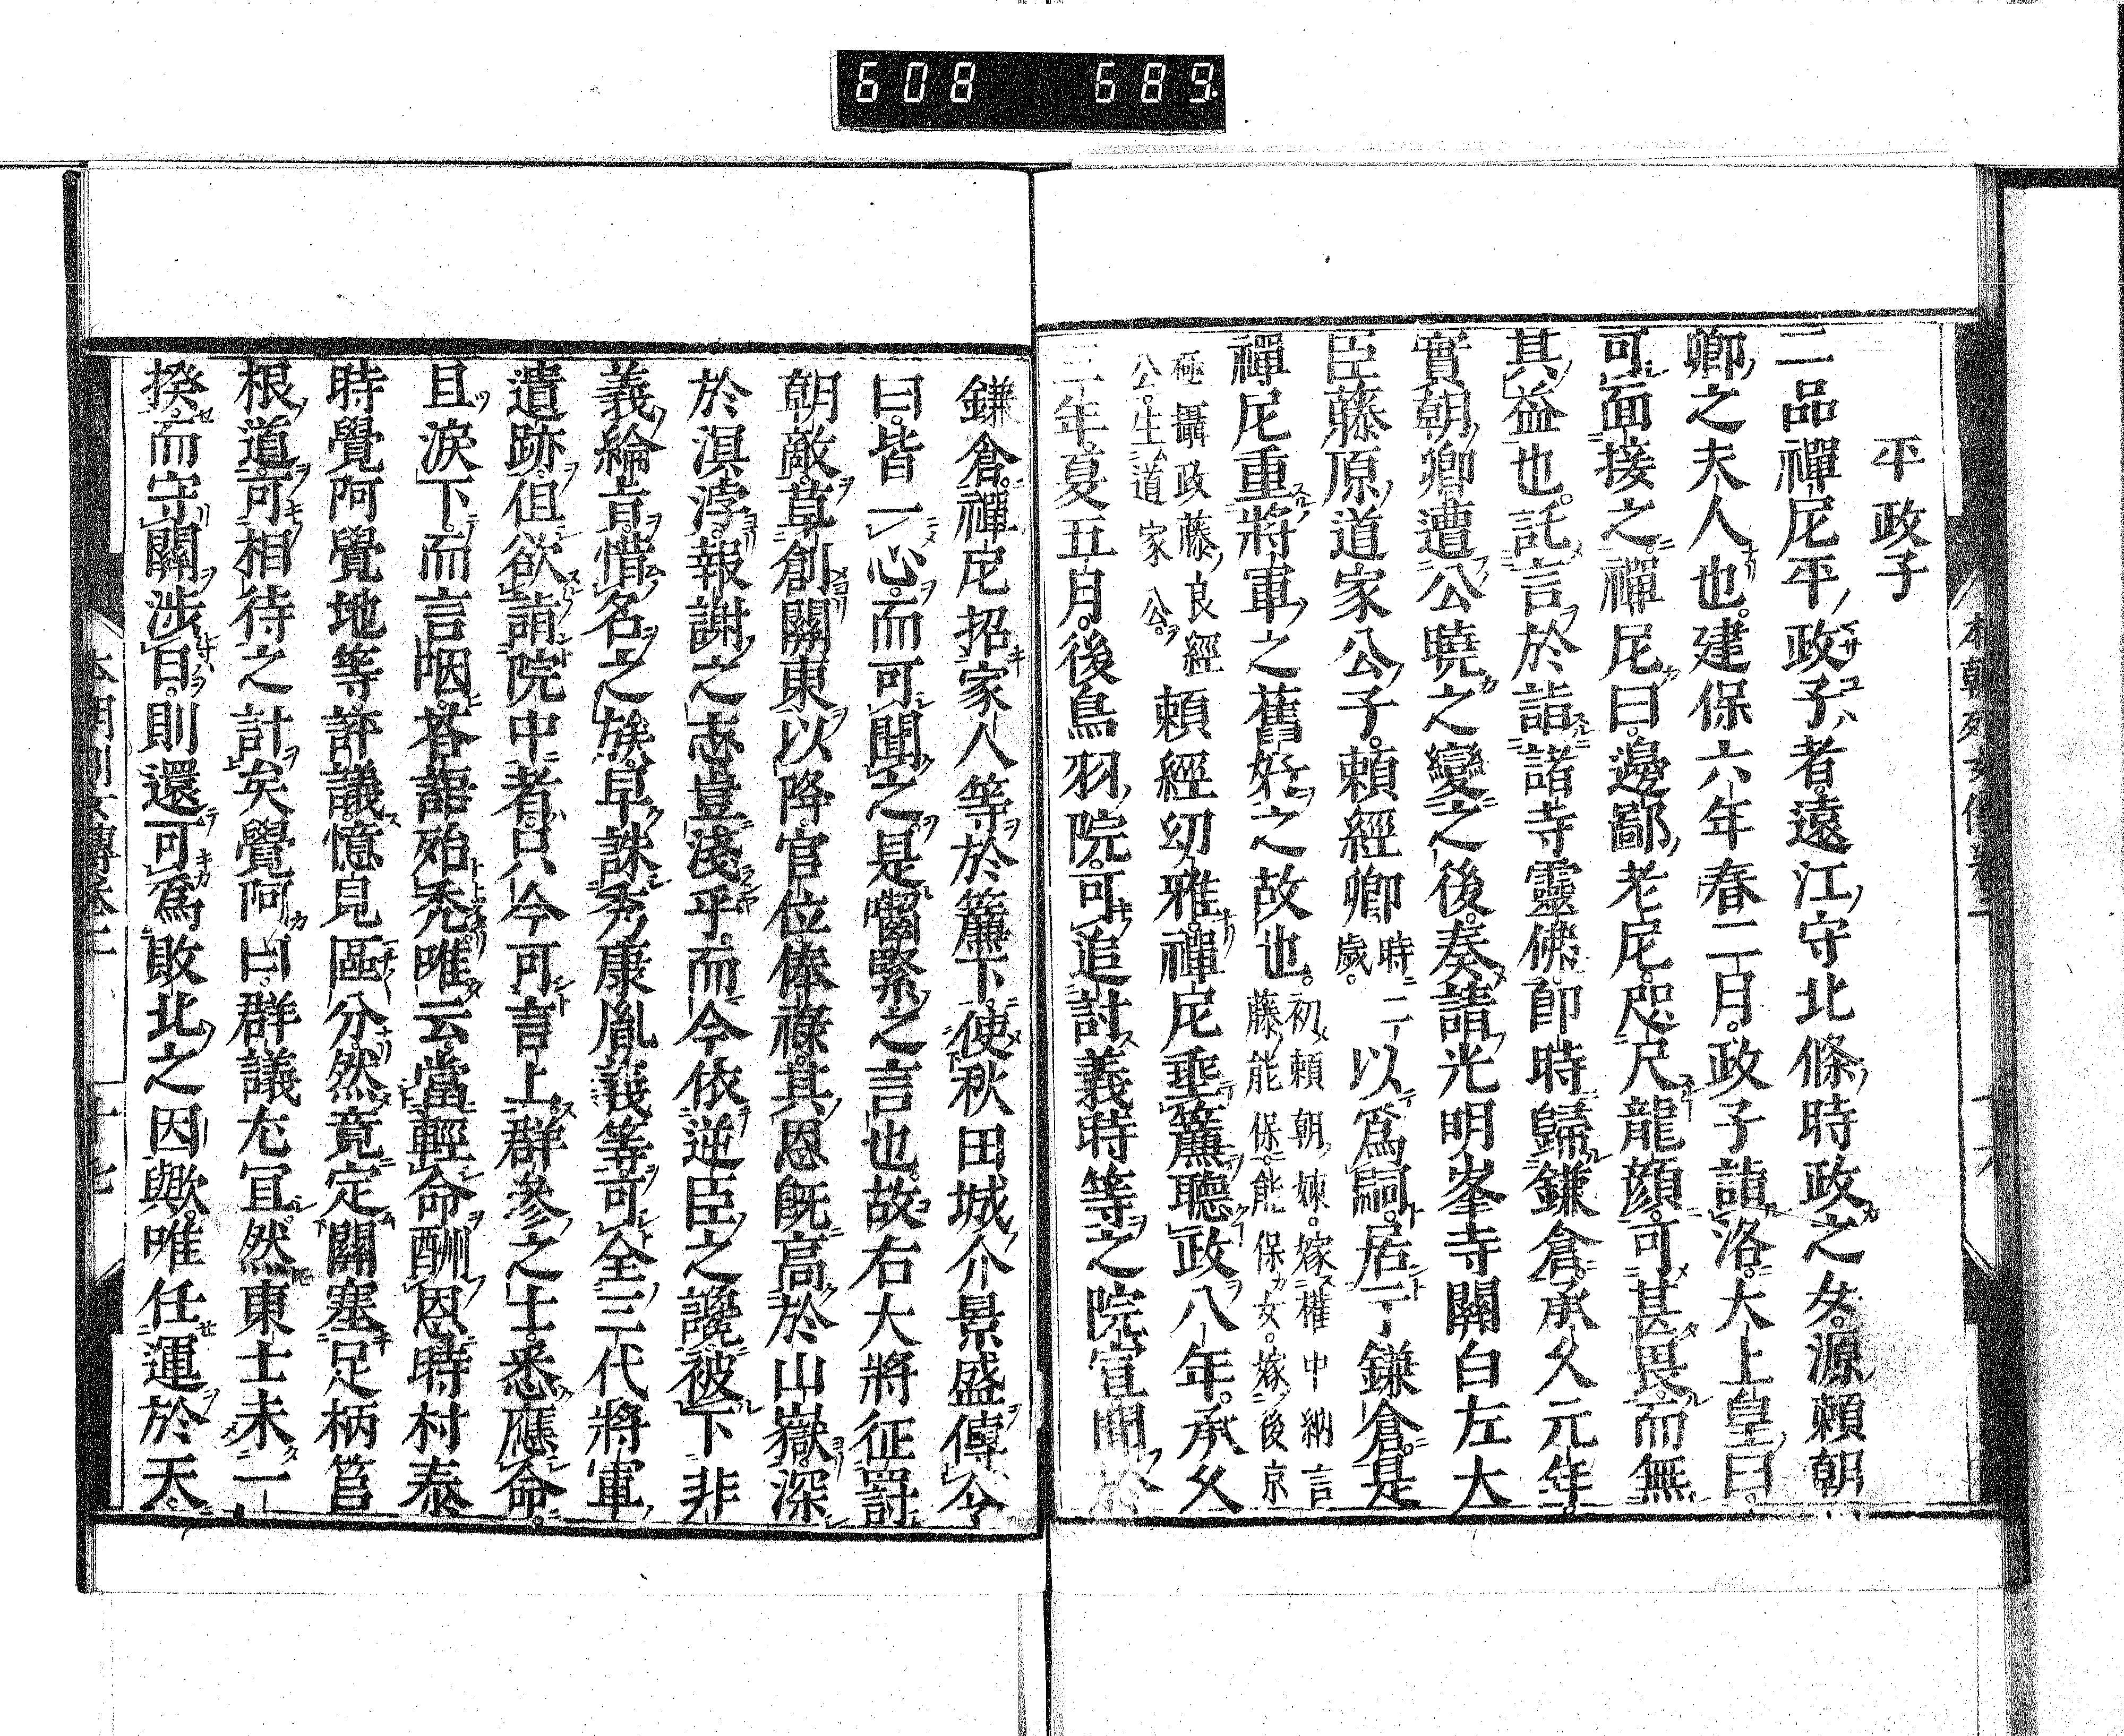 608 689
平政子
二品禪尼平政子者遠江守北條時政之女源頼朝
卿之夫人也。建保六年春二月。政子詣洛。大上皇曰。
可面接之。禪尼曰。邊鄙老尼。咫尺龍顔。可甚畏。而無
其益也。託言於詣諸寺靈佛。即時歸鎌倉。承久元年。
實朝卿遭公曉之變之後。奏請光明峯寺關白左大
臣藤原道家公子。頼經卿時二歳。以爲嗣。居于鎌倉。是
禪尼重將軍之舊好之故也。初頼朝妹。嫁權中納言藤能保。能保女。嫁後京
極攝政藤良經公。生道家公。頼經幼雅。禪尼垂簾聽政八年。承久
三年夏五月。後鳥羽院。可追討義時等之院宣聞於
鎌倉。禪尼招家人等於簾下。使秋田城介景盛傳令
曰。皆一心。而可聞之。是㘝緊之言也。故右大將征罸
朝敵。草創關東以降。官位俸祿。其恩既高於山嶽。深
於溟渤。報謝之志豈淺乎。而今依逆臣之讒。被下非
義綸旨。惜名之族。早誅秀康胤義等。可全三代將軍
遺跡。但欲詣院中者。只今可言上。群參之士。悉應命。
且淚下。而言咽。荅詣殆禿。唯云。當輕命酬恩。時村泰
時覺阿覺地等評議。憶見區分。然竟定關塞足柄筥
根道。可相待之計矣。覺阿曰。群議尤冝。然東士未一
揆而守關渉日。則還可爲敗北之因歟。唯任運於天。
本朝列女傳卷三
十六
本朝列女傳卷三
十七